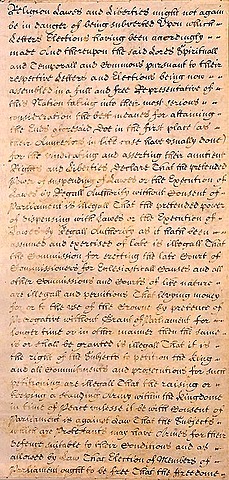 Religion Lawes and Liberties might not againe
be in danger of being subverted Upon which
Letters Elections haveing been accordingly
made And thereupon the said Lords Spirituall
and Temporall and Commons pursuant to their
respective Letters and Elections being now
Assembled in a full and free Representative of
this Nation taking into their most serious
consideration the best meanes for attaining
the Ends aforesaid Doe in the first place as
their Auncestors in like case have usually done
for the vindicating and asserting their auntient
Rights and Liberties, Declare That the pretended
Power of suspending of Lawes or the Execution of
Lawes by Regall Authority without Consent of
Parliament is illegall That the pretended power
of dispensing with Lawes or the Execution of
Lawes by Regall Authority as it hath been
assumed and exercised of late is illegall That
the Commission for erecting the late Court of
Commissioners for Ecclesiasticall Causes and all
other Commissions and Courts of like nature
are illegall and pernitious That levying money
for or to the use of the Crowne by pretence of
Prerogative without Grant of Parliament for
longer time or in other manner then the same
is or shall be granted is illegall That it is
the right of the Subjects to petition the King
and all Commitments and prosecutions for such
petitioning are illegall That the raising or
keeping a standing Army within the Kingdome
in time of Peace unlesse it be with Consent of
Parliament is against Law That the Subjects
which are Protestants may have Armes for their
defence suitable to their Conditions and as
allowed by Law That Election of Members of
Parliament ought to be free That the freedome